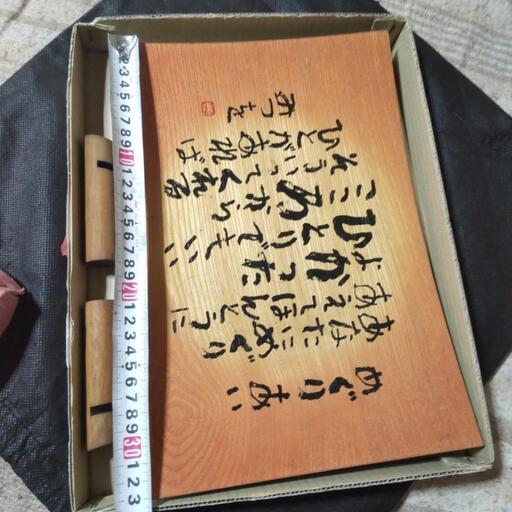 めぐりあい
あなたにめぐり
あえてほんとうに
よかった
ひとりでもいい
こころから
そういってくれる
ひとがあれば
みつを
3 4 5 6 7 8 9 10 1 2 3 4 5 6 7 8 9 20 1 2 3 4 5 6 7 8 9 30 1 2 3